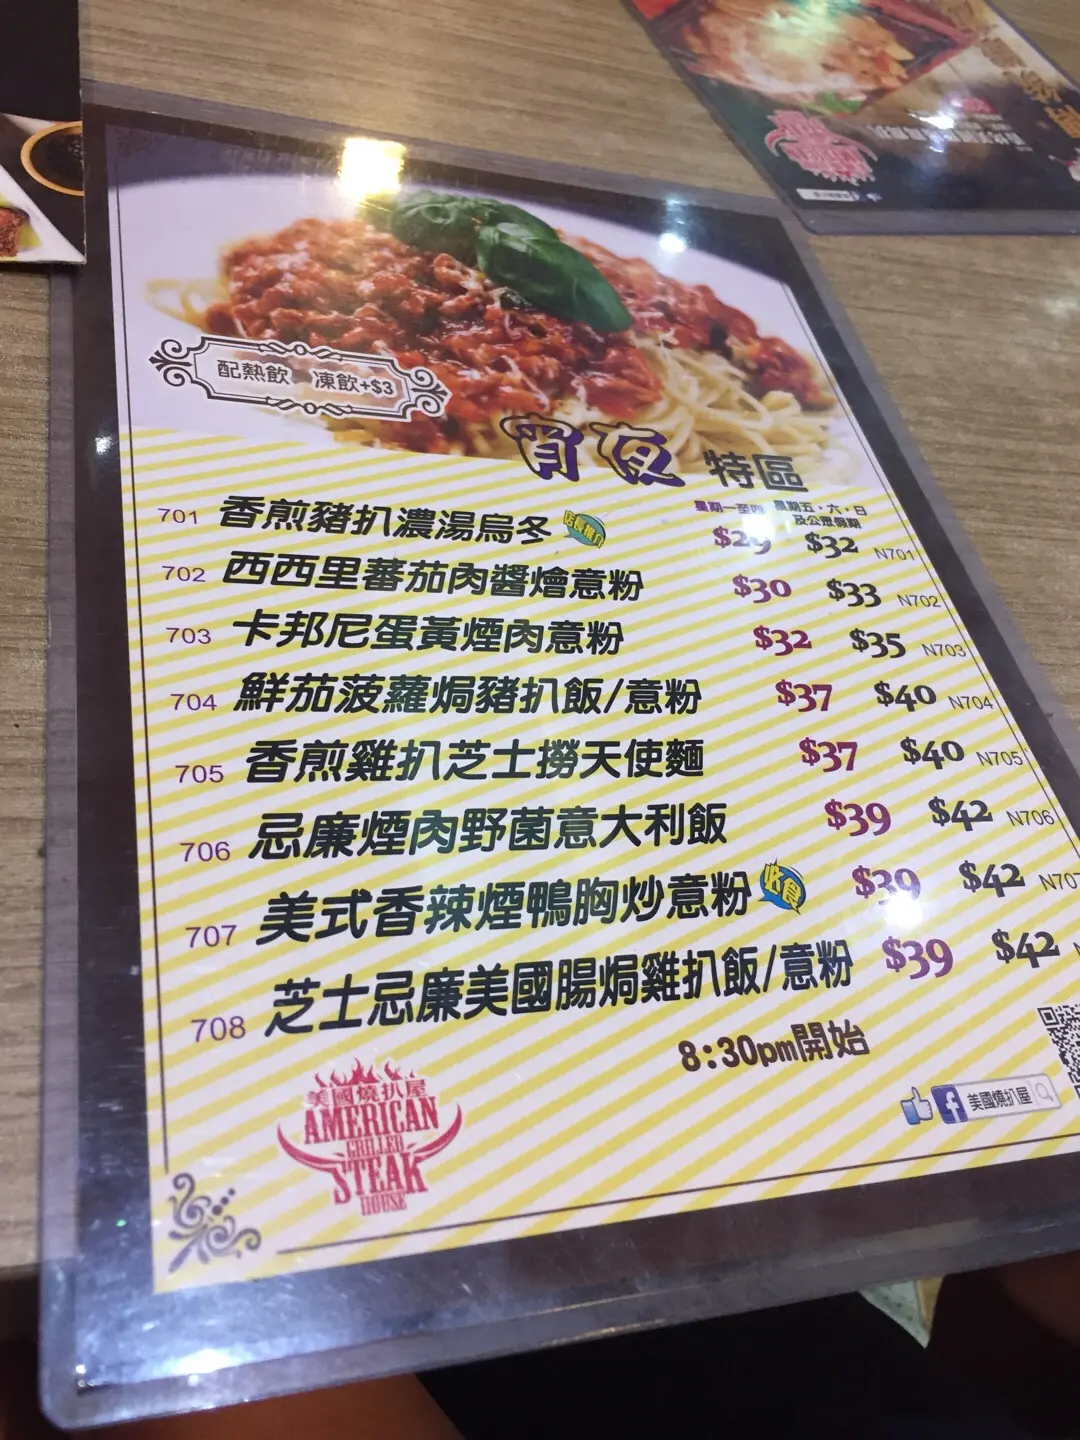 配熱飲 凍飲+$3
宵夜 特區
星期一至四 星期五,六,日
及公眾假期
701 香煎豬扒濃湯烏冬 店長推介 $29 $32 N701
702 西西里蕃茄肉醬燴意粉 $30 $33 N702
703 卡邦尼蛋黃煙肉意粉 $32 $35 N703
704 鮮茄菠蘿焗豬扒飯/意粉 $37 $40 N704
705 香煎雞扒芝士撈天使麵 $37 $40 N705
706 忌廉煙肉野菌意大利飯 $39 $42 N706
707 美式香辣煙鴨胸炒意粉 必食 $39 $42 N707
708 芝士忌廉美國腸焗雞扒飯/意粉 $39 $42 N
8:30pm開始
美國燒扒屋
AMERICAN
GRILLED
STEAK
HOUSE
f 美國燒扒屋